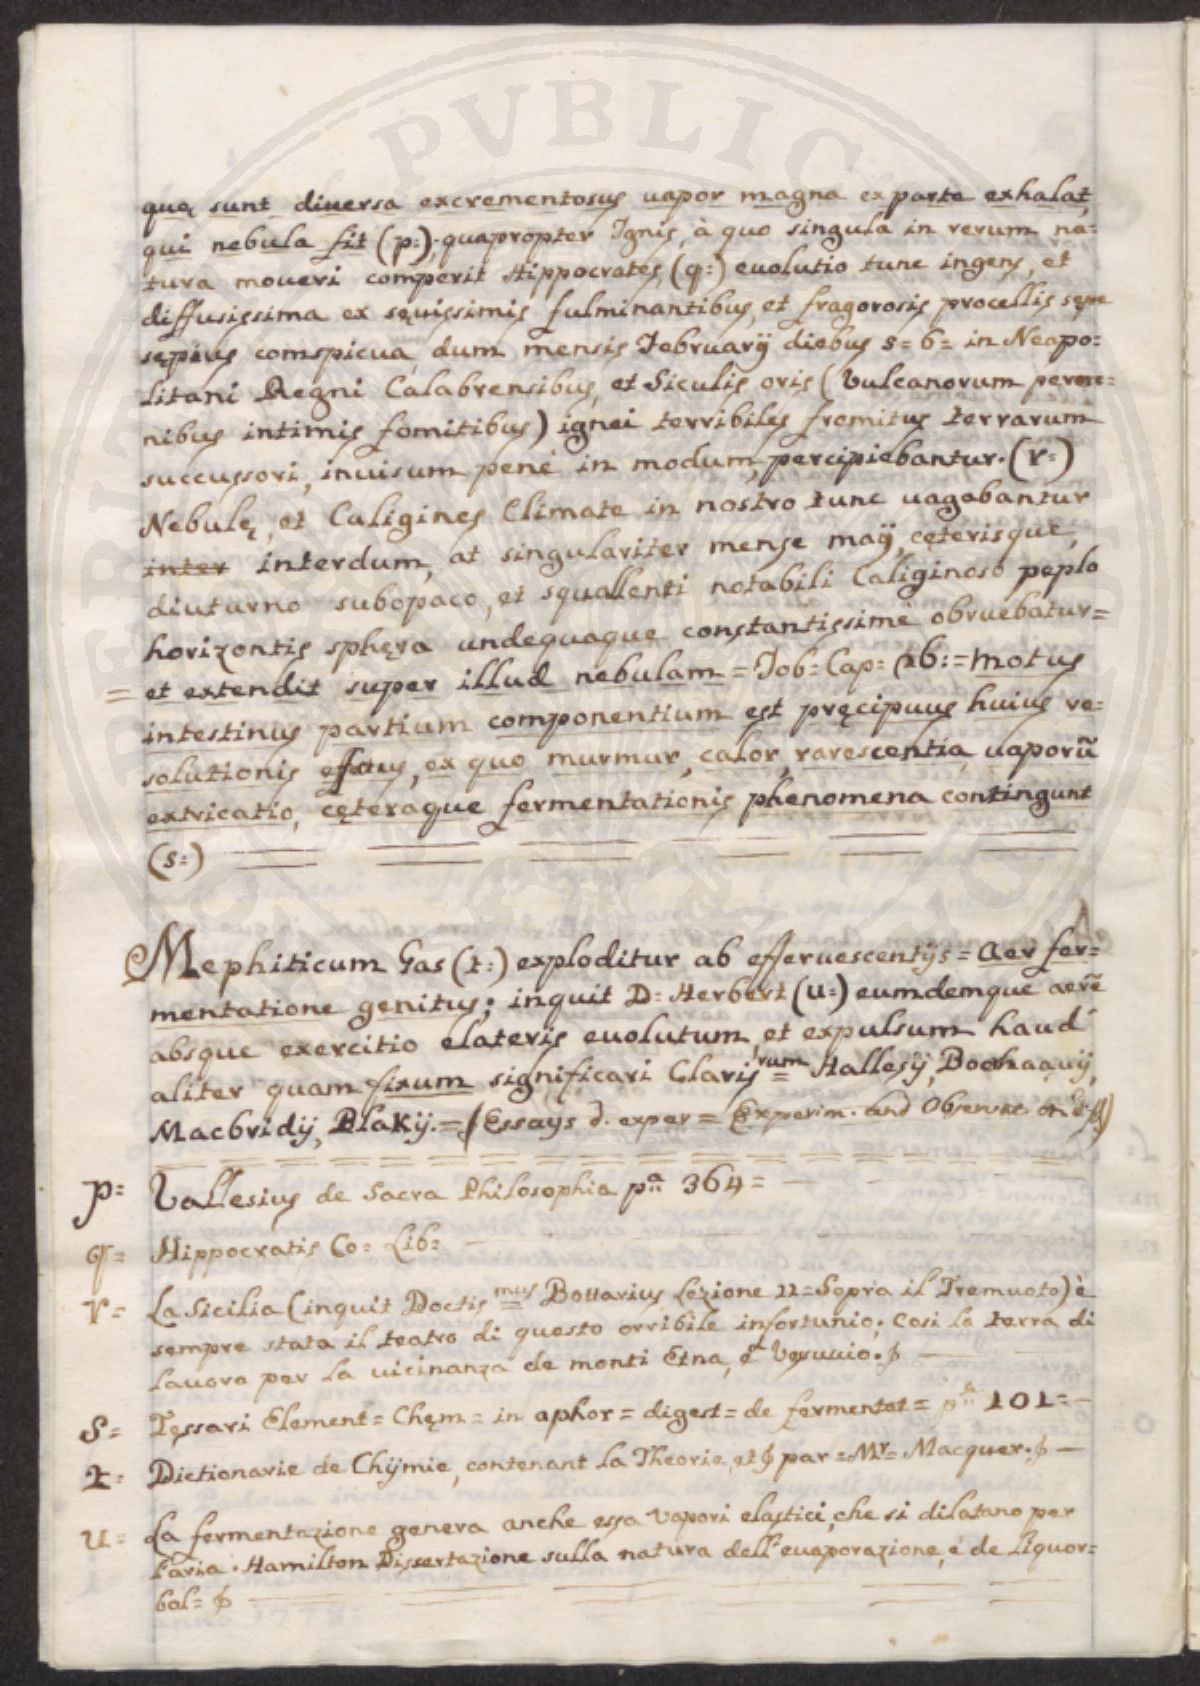 quę sunt diuersa excrementosus uapor magna ex parte exhalat,
qui nebula fit (p:); quapropter Ignis, à quo singula in rerum na=
tura moueri comperit Hippocrates, (q:) euolutio tunc ingens, et
diffusissima ex sęuissimis fulminantibus, et fragorosis procellis sępe
sępius comspicua, dum mensis Februarij diebus 5= 6= in Neapo=
litani Regni Calabrensibus, et Siculis oris (Vulcanorum peren=
nibus intimis fomitibus) ignei terribiles fremitus terrarum
succussori, inuisum penè in modum, percipiebantur. (r:)
Nebulę, et Caligines Climate in nostro tunc uagabantur
inter interdum, at singulariter mense maij, cęterisque,
diuturno subopaco, et squallenti notabili Caliginoso peplo
horizontis sphęra undequaque constantissimè obruebatur=
= et extendit super illud nebulam = Job= Cap= 36: = Motus
intestinus partium componentium est pręcipuus huius re=
solutionis effectus, ex quo murmur, calor, rarescentia, uaporũ
extricatio, cęteraque fermentationis phenomena contingunt
(s:)
Mephiticum Gas (t:) exploditur ab efferuescentijs= Aer fer=
mentatione genitus; inquit D= Herbert (u:) eumdemque aerẽ
absque exercitio elateris euolutum, et expulsum haud
aliter quam fixum significari Claris=rum Hallesij, Boerhaauij,
Macbridij, Blakij.= (Essays d. exper= Experim. and Obseruat. on
p= Vallesius de Sacra Philosophia pª 364=
q= Hippocratis Co= Lib=
r= La Sicilia (inquit Doctis=mus Bottarius Lezione 11=Sopra il Tremuoto) è
sempre stata il teatro di questo orribile infortunio; Cosi la terra di
lauoro per la uicinanza de monti Etna, e Vesuuio.
s= Tessari Element= Chęm= in aphor= digest= de fermentat= pª 101=
t= Dictionarie de Chijmie, contenant la Theorie, et par=Mr= Macquer.
u= La fermentazione genera anche essa Vapori elastici, che si dilatano per
l'aria. Hamilton Dissertazione sulla natura dell'euaporazione, e de Liquor=
bal=